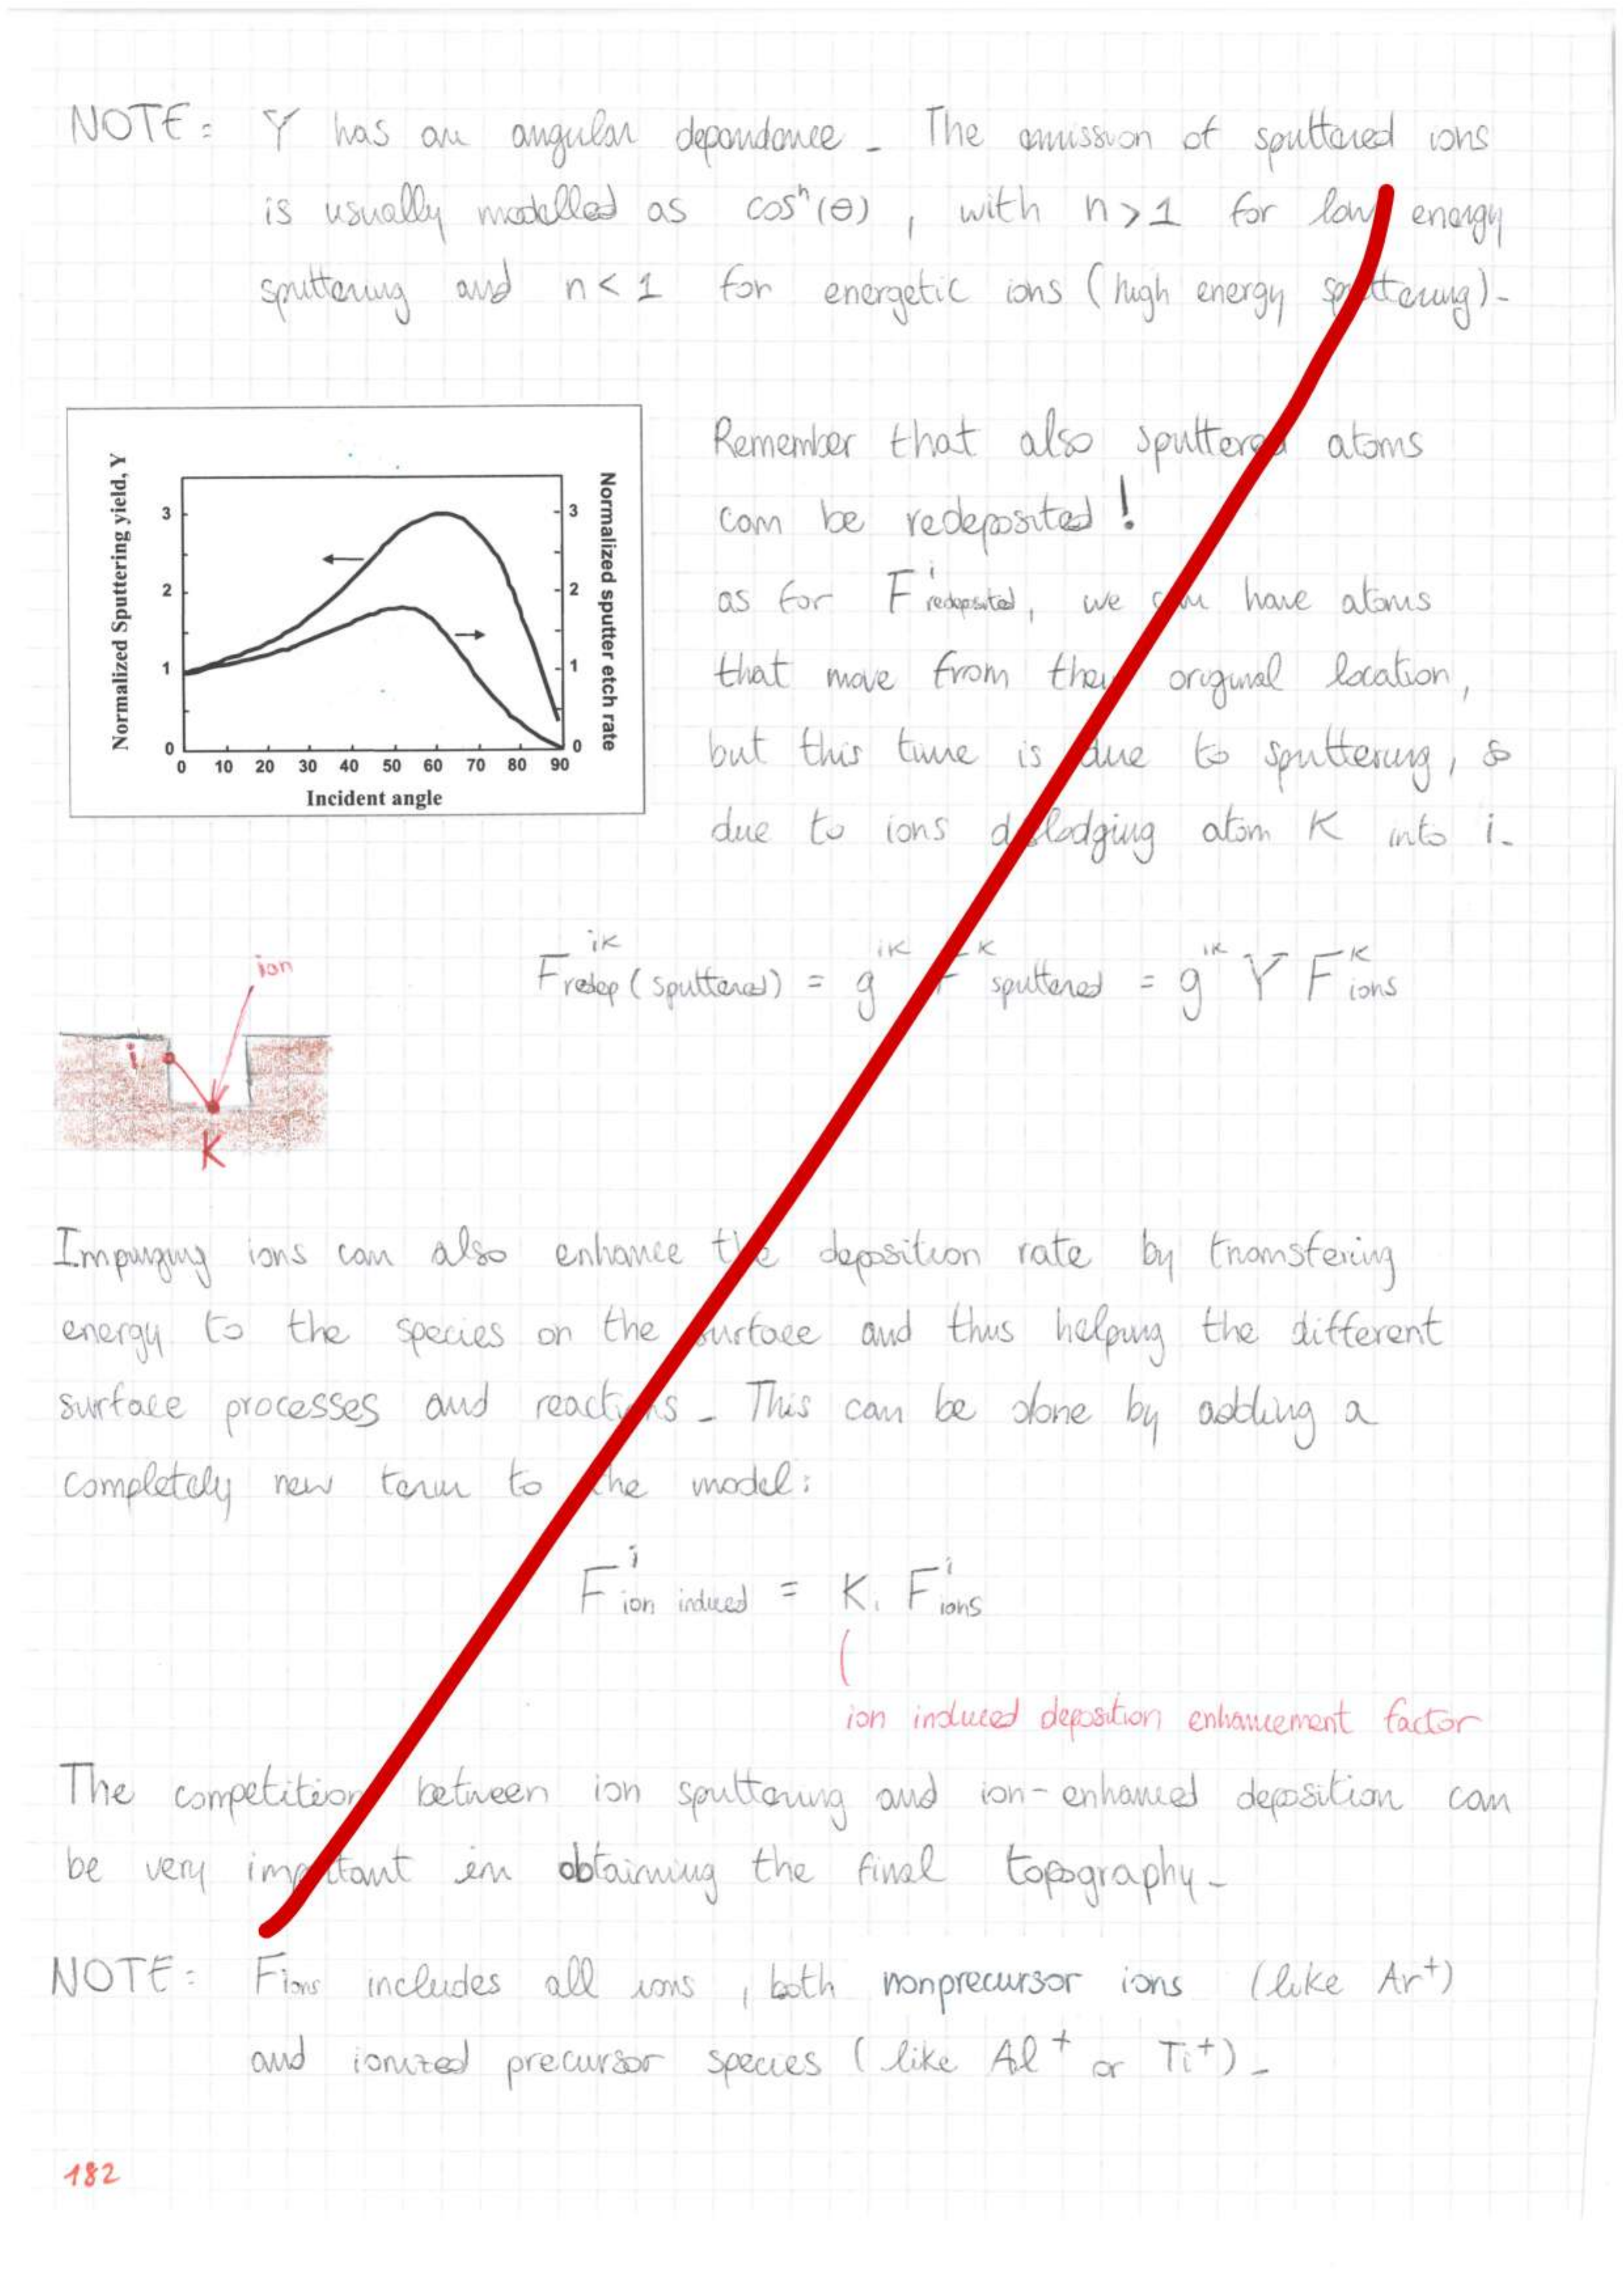 NOTE: Y has an angular dependance - The emission of sputtered ions
is usually modelled as cosⁿ(θ) , with n>1 for low energy
sputtering and n<1 for energetic ions (high energy sputtering)-
Normalized Sputtering yield, Y
3
2
1
0
3
2
1
0
Normalized sputter etch rate
0 10 20 30 40 50 60 70 80 90
Incident angle
Remember that also sputtered atoms
can be redeposited !
as for F^i redeposited, we can have atoms
that move from their original location,
but this time is due to sputtering, so
due to ions dislodging atom K into i-
F^ik redep (sputtered) = g^ik F^k sputtered = g^ik Y F^k ions
ion
i
K
Impinging ions can also enhance the deposition rate by transfering
energy to the species on the surface and thus helping the different
surface processes and reactions - This can be done by adding a
completely new term to the model:
F^i ion induced = Ki F^i ions
ion induced deposition enhancement factor
The competition between ion sputtering and ion-enhanced deposition can
be very important in obtaining the final topography-
NOTE: Fions includes all ions , both nonprecursor ions (like Ar⁺)
and ionized precursor species (like Al⁺ or Ti⁺)-
182